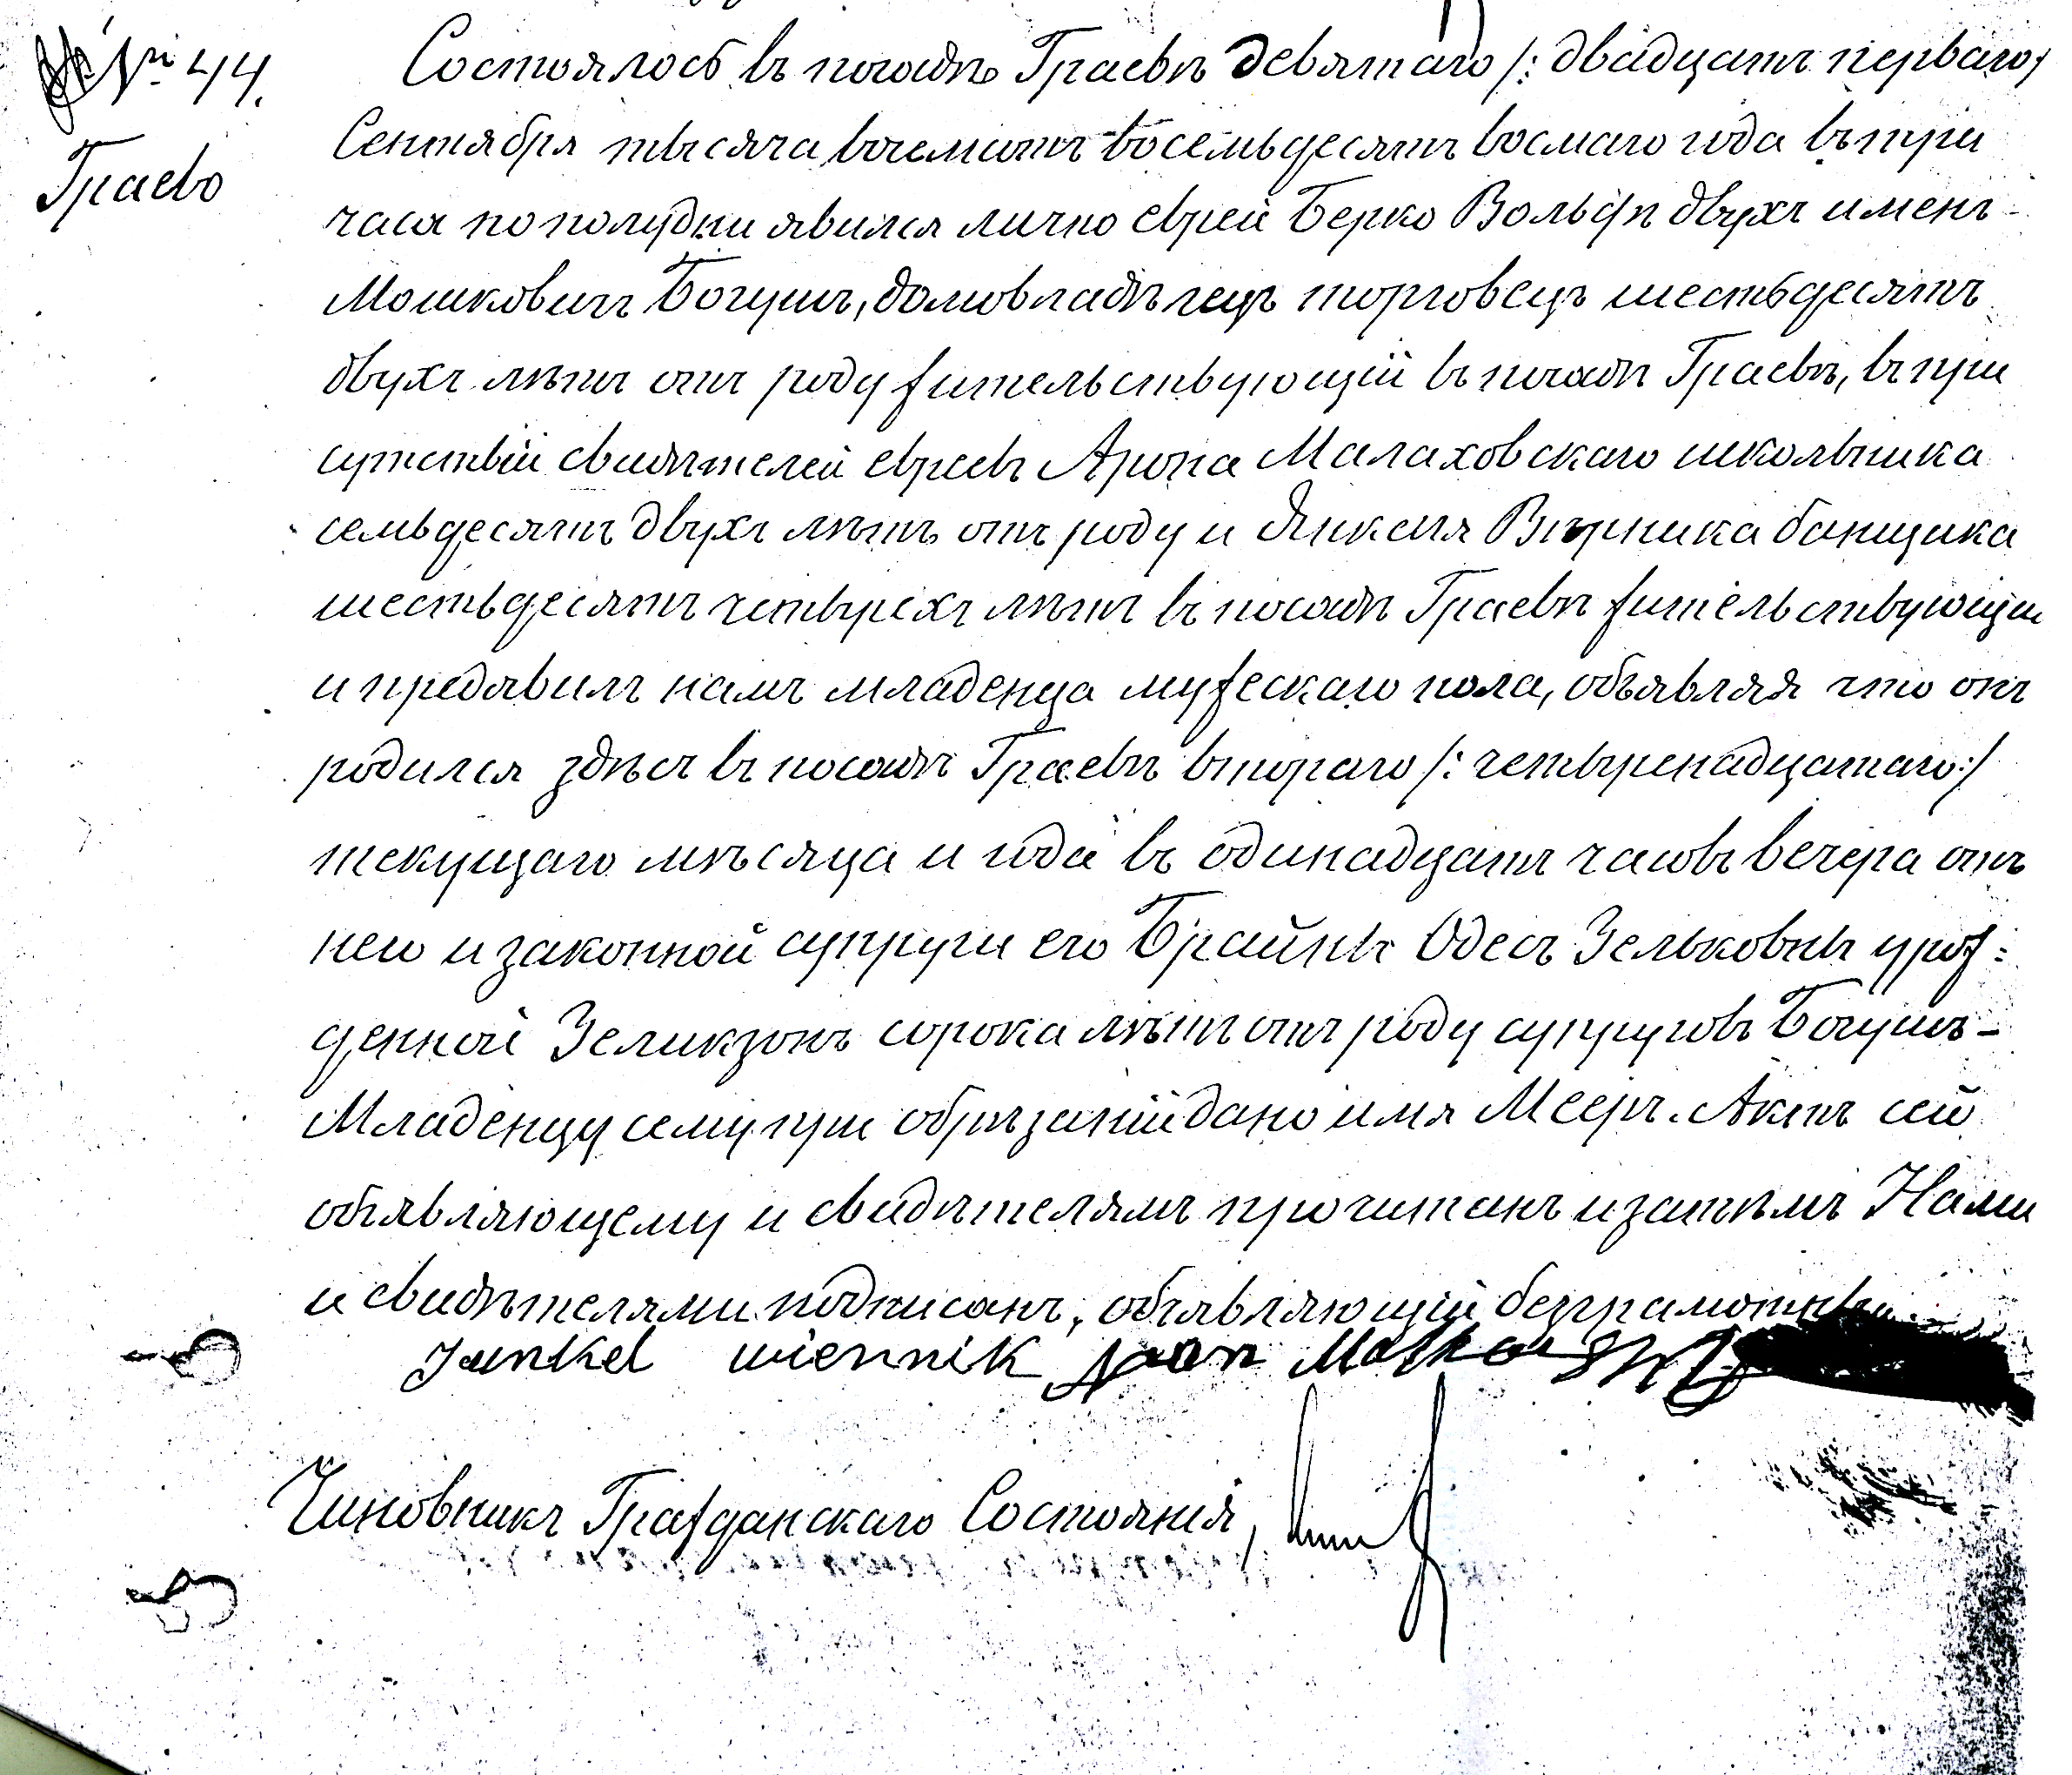 № 44.
Граево
Состоялось въ посадѣ Граевѣ девятаго /: двадцать перваго /
Сентября тысяча восемьсотъ восемьдесятъ восмаго года въ три
часа по полудни явился лично еврей Берко Вольфъ двухъ именъ
Мошковичъ Богушъ, домовладѣлецъ торговецъ шестьдесятъ
двухъ лѣтъ отъ роду жительствующій въ посадѣ Граевѣ, въ при
сутствіи свидѣтелей евреевъ Арона Малаховскаго школьника
семьдесятъ двухъ лѣтъ отъ роду и Янкеля Вѣрника банщика
шестьдесятъ четырехъ лѣтъ въ посадѣ Граевѣ жительствующи
и предявилъ намъ младенца мужескаго пола, объявляя что онъ
родился здѣсь въ посадѣ Граевѣ втораго /: четыренадцатаго :/
текущаго мѣсяца и года въ одинадцать часовъ вечера отъ
него и законной супруги его Брайнѣ Одесъ Зельковнѣ урож:
денной Зеликзонъ сорока лѣтъ отъ роду супруговъ Богушъ -
Младенцу сему при обрѣзаніи дано имя Мееръ. Актъ сей
объявляющему и свидѣтелямъ прочитанъ и затѣмъ Нами
и свидѣтелями подписанъ, объявляющій безграмотный.
Jankel wiernik Aron
Чиновникъ Гражданскаго Состоянія,